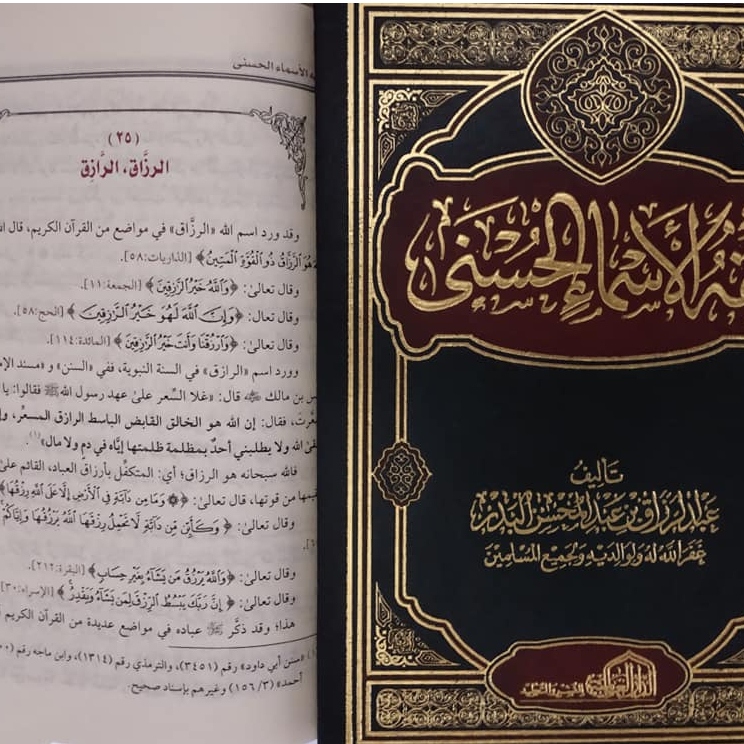 ـه الأسماء الحسنى
(٢٥)
الرزَّاق، الرَّازِق
وقد ورد اسم الله «الرزَّاق» في مواضع من القرآن الكريم، قال
هُوَ ٱلرَّزَّاقُ ذُو ٱلْقُوَّةِ ٱلْمَتِينُ﴾ [الذاريات:٥٨].
وقال تعالىٰ: ﴿وَٱللَّهُ خَيْرُ ٱلرَّٰزِقِينَ﴾ [الجمعة:١١].
وقال تعالىٰ: ﴿وَإِنَّ ٱللَّهَ لَهُوَ خَيْرُ ٱلرَّٰزِقِينَ﴾ [الحج:٥٨].
وقال تعالىٰ: ﴿وَٱرْزُقْنَا وَأَنتَ خَيْرُ ٱلرَّٰزِقِينَ﴾ [المائدة:١١٤].
وورد اسم «الرازق» في السنة النبوية، ففي «السنن» و«مسند
بن مالك ﵁ قال: «غلا السِّعر علىٰ عهد رسول الله ﷺ فقالوا: يا
فقال: إن الله هو الخالق القابض الباسط الرازق المسعِّر،
الله ولا يطلبني أحدٌ بمظلمة ظلمتها إيَّاه في دمٍ ولا مال»(١).
فالله سبحانه هو الرزاق؛ أي: المتكفِّل بأرزاق العباد، القائم علىٰ
من قوتها، قال تعالىٰ: ﴿۞ وَمَا مِن دَآبَّةٍ فِي ٱلْأَرْضِ إِلَّا عَلَى ٱللَّهِ رِزْقُهَا﴾
وقال تعالىٰ: ﴿وَكَأَيِّن مِّن دَآبَّةٍ لَّا تَحْمِلُ رِزْقَهَا ٱللَّهُ يَرْزُقُهَا وَإِيَّاكُمْ
وقال تعالىٰ: ﴿وَٱللَّهُ يَرْزُقُ مَن يَشَآءُ بِغَيْرِ حِسَابٍ﴾ [البقرة:٢١٢].
وقال تعالىٰ: ﴿إِنَّ رَبَّكَ يَبْسُطُ ٱلرِّزْقَ لِمَن يَشَآءُ وَيَقْدِرُ﴾ [الإسراء:٣٠]
هذا؛ وقد ذكَّر ﷻ عباده في مواضع عديدة من القرآن الكريم
«سنن أبي داود» رقم (٣٤٥١)، والترمذي رقم (١٣١٤)، وابن ماجه رقم
أحمد» (٣/ ١٥٦) وغيرهم بإسناد صحيح.
فقه الأسماء الحسنى
تأليف
عبد الرزاق بن عبد المحسن البدر
غفر الله له ولوالديه ولجميع المسلمين